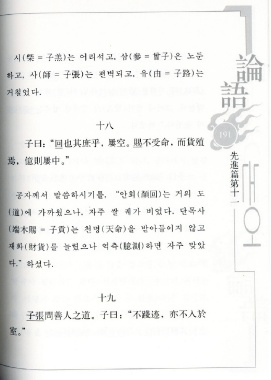 시(柴 = 子羔)는 어리석고, 삼(參 = 曾子)은 노둔
하고, 사(師 = 子張)는 편벽되고, 유(由 = 子路)는
거칠었다.
十八
子曰: "回也其庶乎, 屢空. 賜不受命, 而貨殖
焉, 億則屢中."
공자께서 말씀하시기를, "안회(顔回)는 거의 도
(道)에 가까웠으나, 자주 쌀 궤가 비었다. 단목사
(端木賜 = 子貢)는 천명(天命)을 받아들이지 않고
재화(財貨)를 늘렸으나 억측(臆測)하면 자주 맞았
다." 하셨다.
十九
子張問善人之道, 子曰: "不踐迹, 亦不入於
室."
論語
191
先進篇第十一